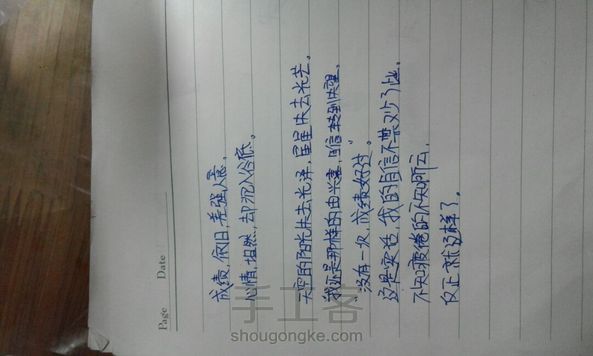 Page
Date
成绩,依旧,差强人意。
心情,坦然,却沉入谷底。
天空的阳光失去光泽,星星失去光芒。
我还是那样的由兴喜,自信转到失望。
没有一次,成绩好过。
这是实话,我的自信不禁又少了些。
不知疲倦的不知所云
反正就这样了。
手工客
shougongke.com